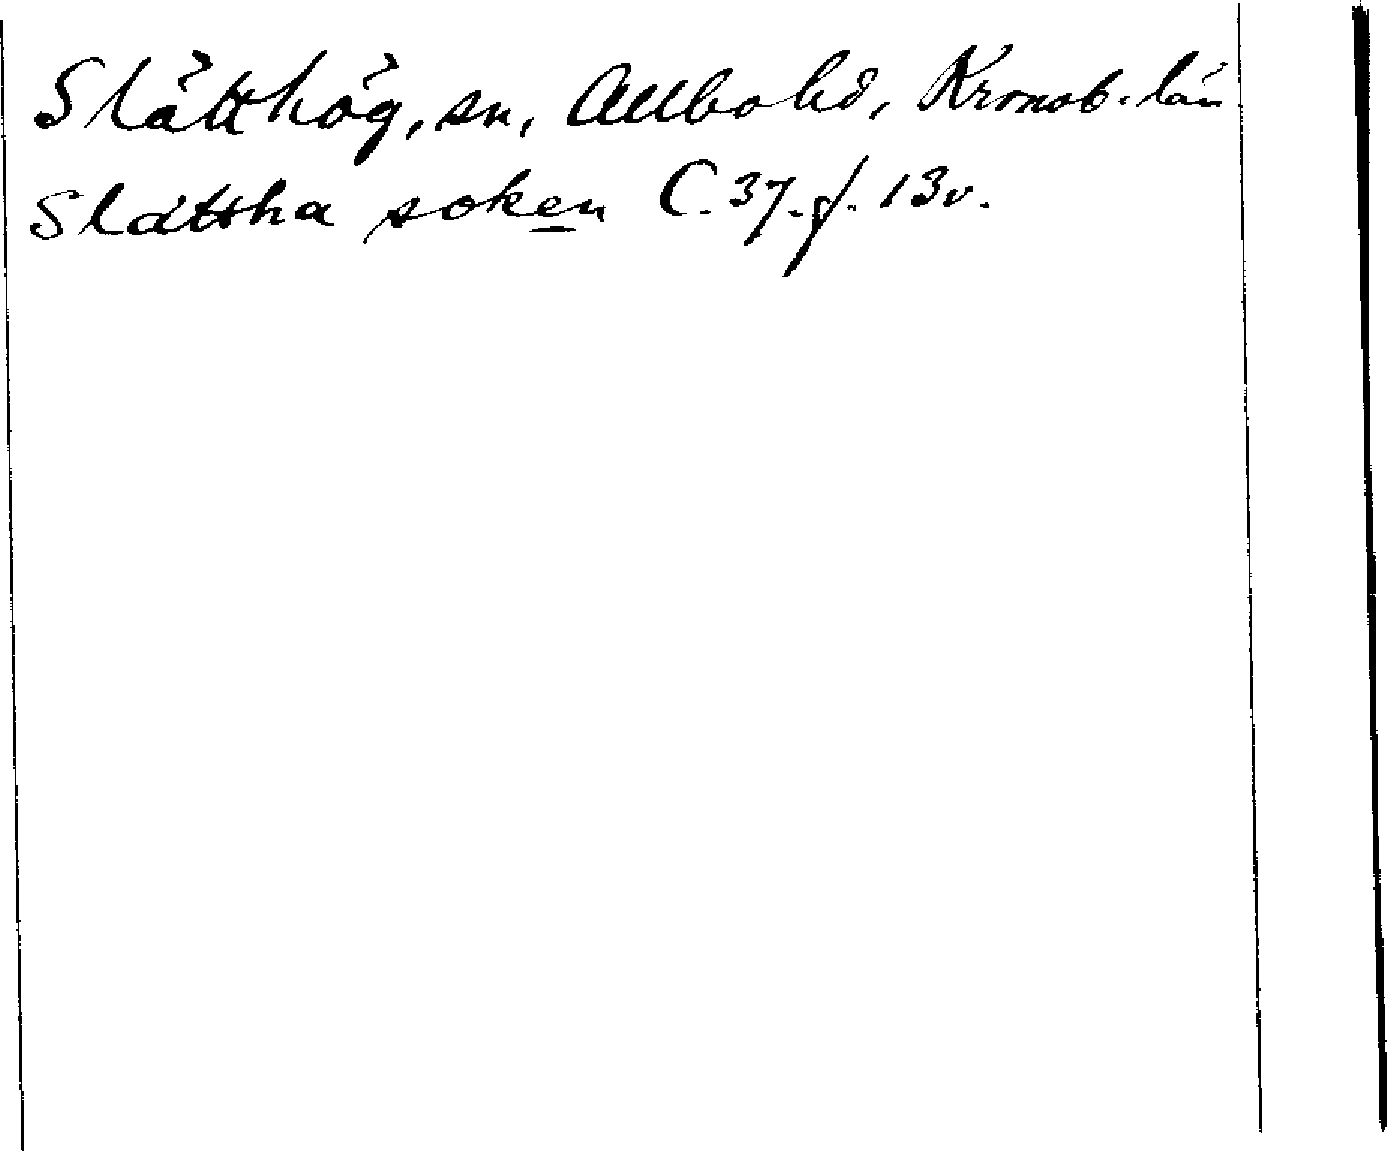 Slätthög, sn, Allbo hd, Kronob. län
Slättha soken C. 37. f. 13v.